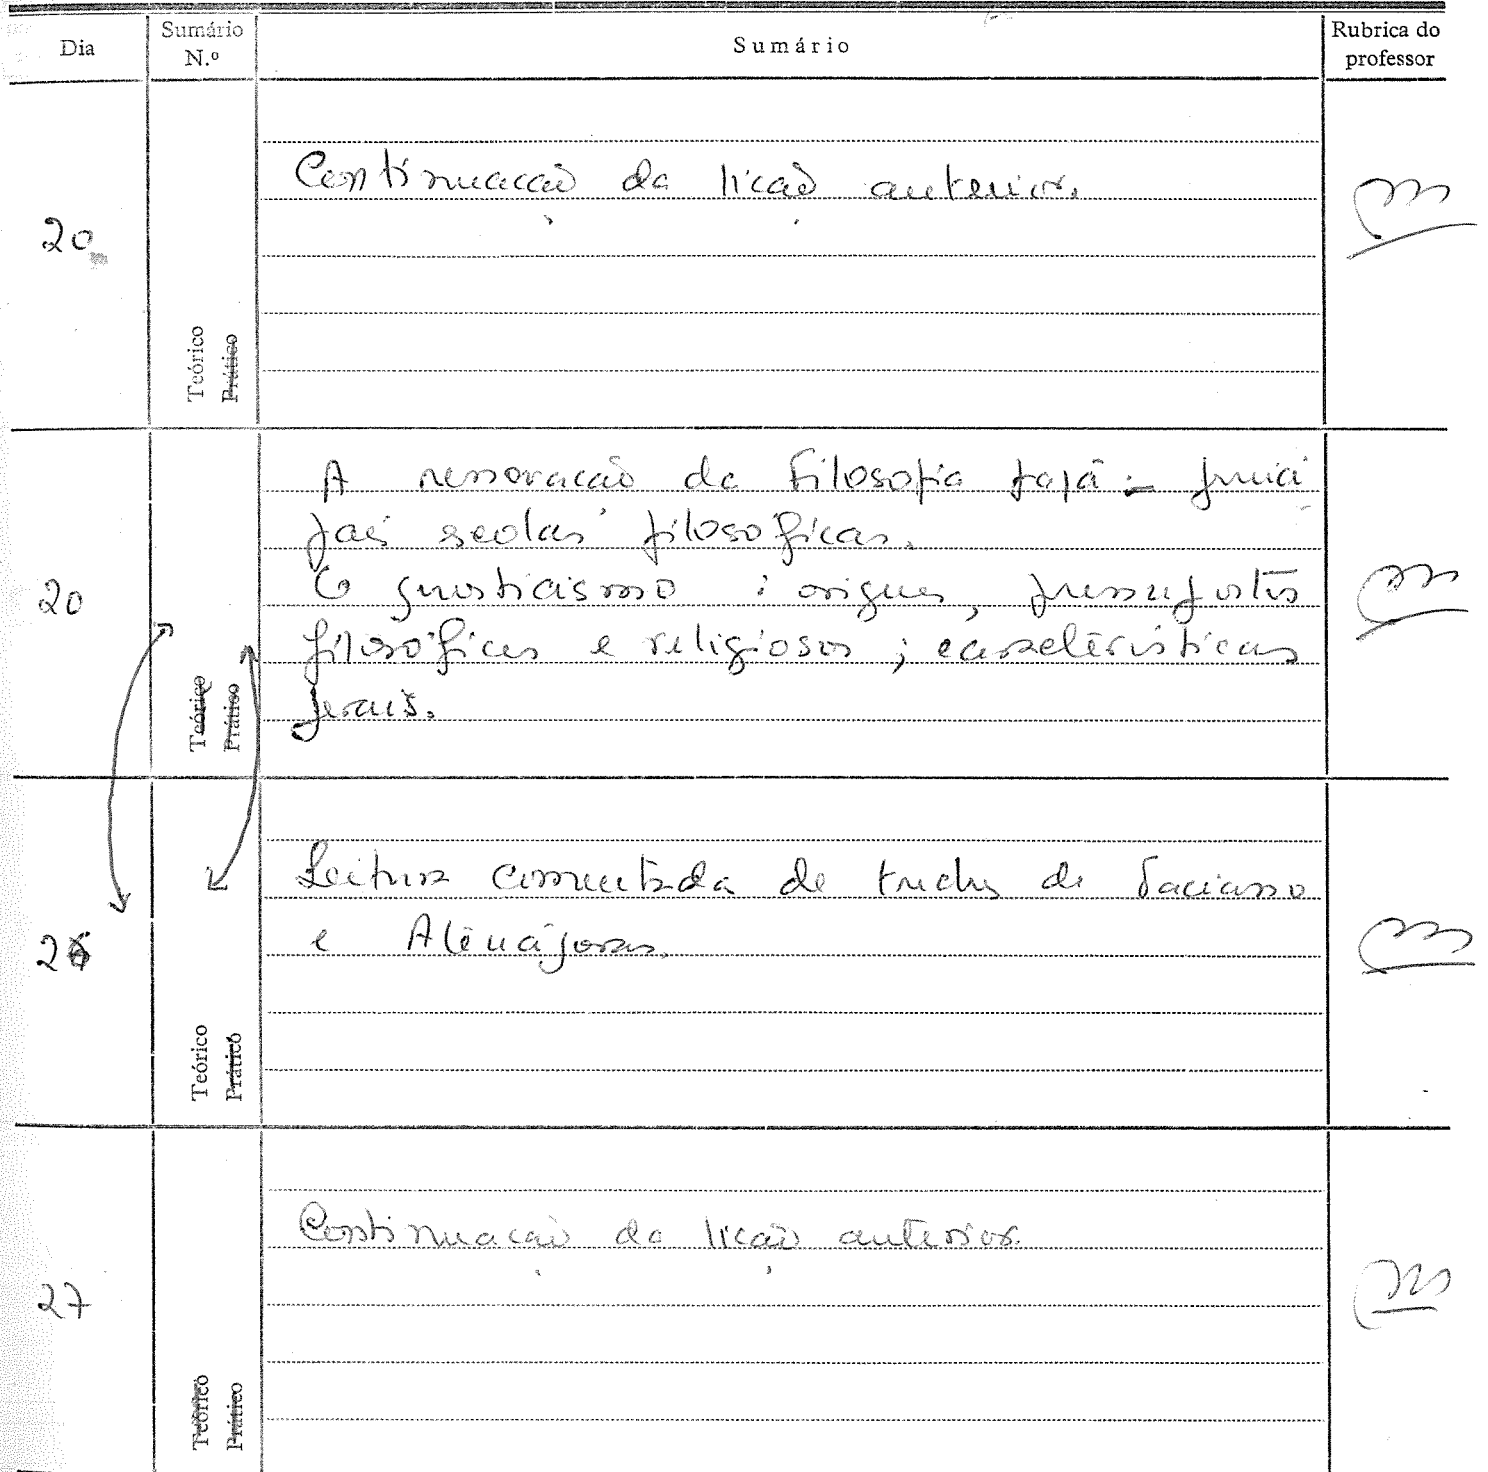 Dia
Sumário
N.º
Sumário
Rubrica do
professor
20
Teórico
Prático
Continuação da lição anterior.
20
Teórico
Prático
A renovação da Filosofia pagã - princi
pais escolas filosóficas.
O gnosticismo : origens, pressupostos
filosóficos e religiosos ; características
gerais.
Teórico
Prático
Leitura comentada de trechos de Taciano
e Atenágoras.
27
Teórico
Prático
Continuação da lição anterior.